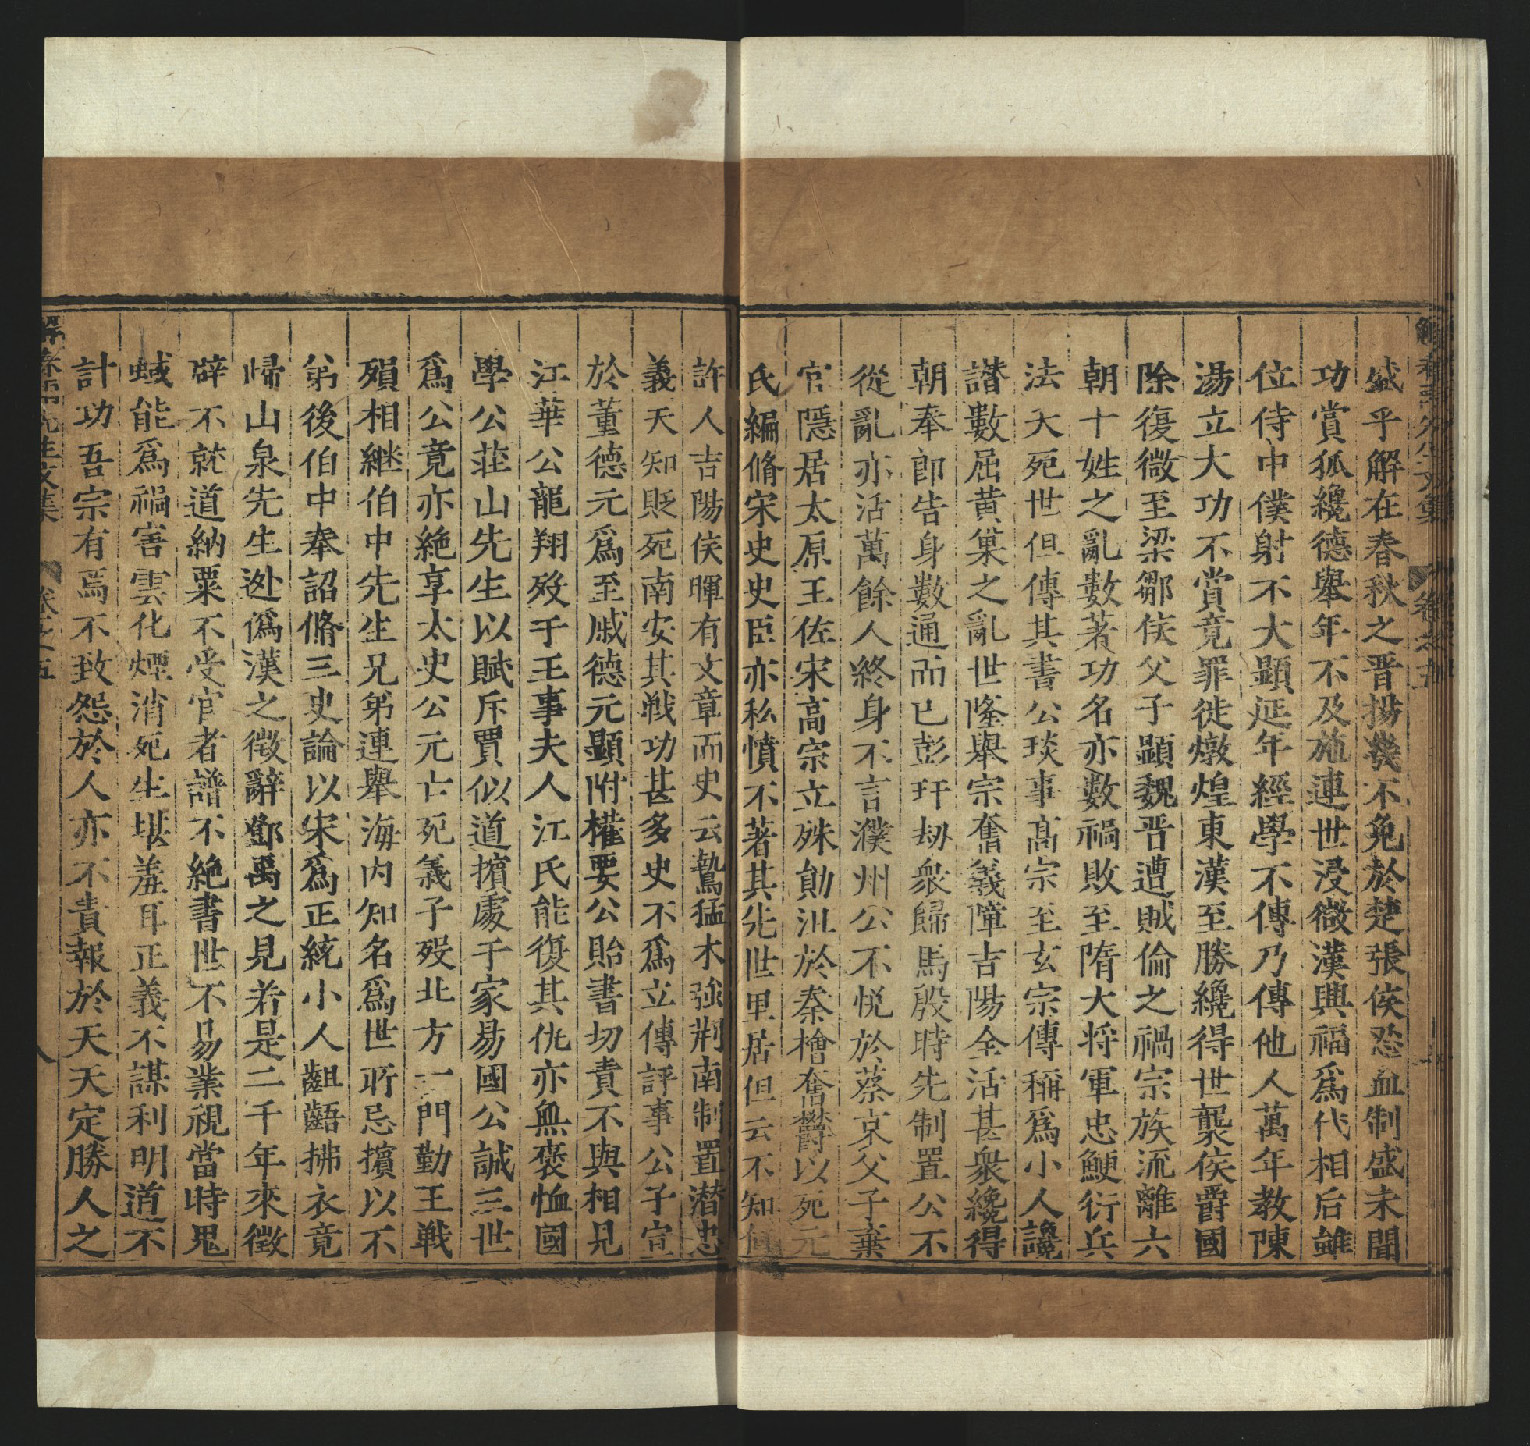 盛乎解在春秋之晋揚幾不免於楚張侯恐血制盛未聞
功賞狐纔德舉年不及施連世浸微漢興福爲代相后雖
位侍中僕射不大顯延年經學不傳乃傳他人萬年教陳
湯立大功不賞竟罪徙燉煌東漢至勝纔得世襲侯爵國
除復微至梁鄒侯父子顯魏晋遭賊倫之禍宗族流離六
朝十姓之亂數著功名亦數禍敗至隋大將軍忠鯁衍兵
法天死世但傳其書公琰事高宗至玄宗傳稱爲小人讒
譖數屈黄巢之亂世隆舉宗奮義障吉陽全活甚衆纔得
朝奉郎告身數通而已彭玕劫衆歸馬殷時先制置公不
從亂亦活萬餘人終身不言濮州公不悦於蔡京父子棄
官隱居太原王佐宋高宗立殊勛沮於秦檜奮欝以死元
氏編脩宋史史臣亦私憤不著其先世里居但云不知何
許人吉陽侯暉有文章而史云鷙猛木強荆南制置潜忠
義天知貶死南安其戦功甚多史不爲立傳評事公子宣
於董德元爲至戚德元顯附權要公貽書切責不與相見
江華公龍翔歿于王事夫人江氏能復其仇亦無褒恤國
學公莊山先生以賦斥賈似道擯處于家易國公誠三世
爲公竟亦絶享太史公元亡死義子歿北方一門勤王戦
殞相継伯中先生兄弟連舉海内知名爲世所忌擯以不
弟後伯中奉詔脩三史論以宋爲正統小人齟齬拂衣竟
歸山泉先生迯僞漢之徵辭鄧禹之見若是二千年來徵
辟不就道納粟不受官者譜不絶書世不易業視當時鬼
蜮能爲禍害雲化煙消死生堪羞耳正義不謀利明道不
計功吾宗有焉不致怨於人亦不責報於天天定勝人之
解春雨先生文集 卷之五 八